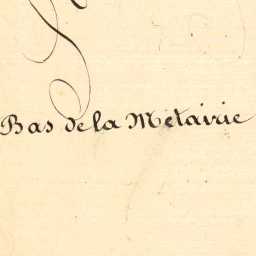 Bas de la Métairie